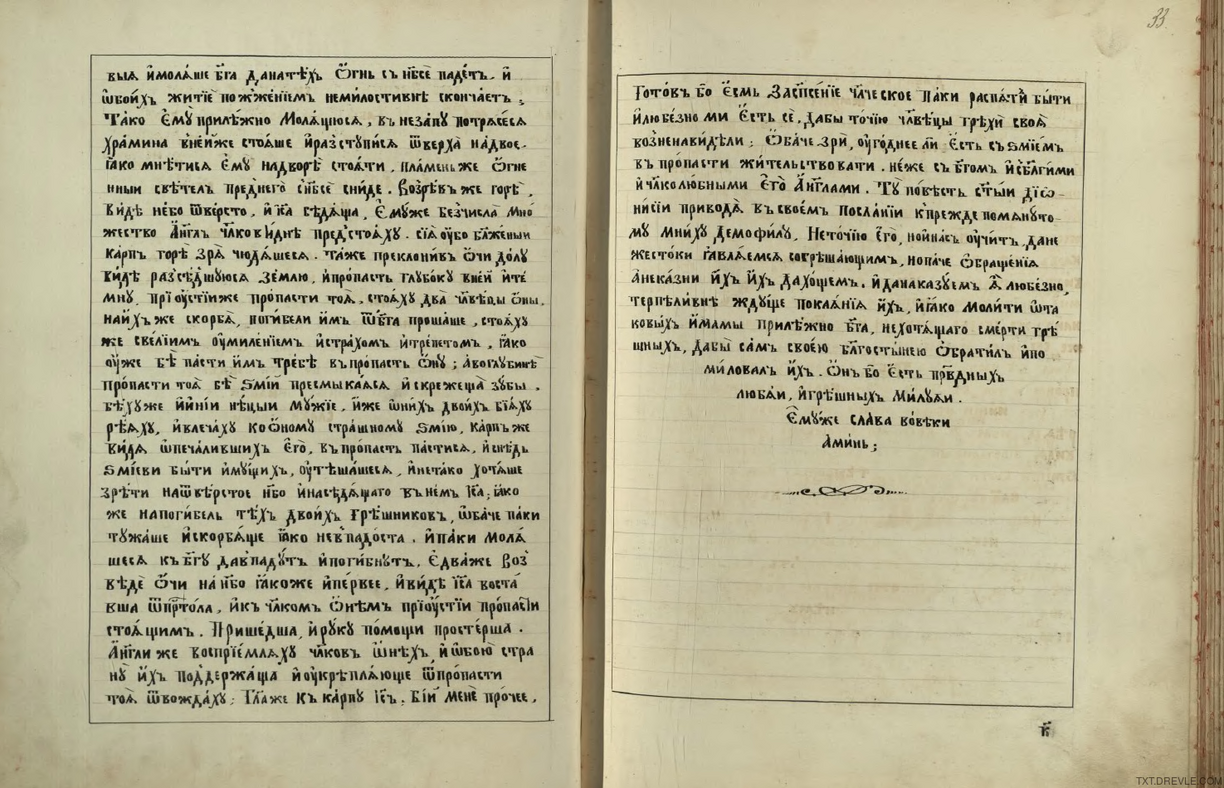 выѧ и҆молѧ́ше бг҃а да̀натѣ́хъ Ѻ҆́гнь съ нб҃сѐ паде́тъ. и҆
ѡ҆бои́хъ житїѐ пожже́нїемъ неми́лостивнѣ скончае́тъ ;
Та́ко є҆мꙋ̀ прилѣ́жно молѧ́щꙋсѧ, въ неза́пꙋ потрѧсе́сѧ
хра́мина вне́йже стоѧ́ше и҆разстꙋпи́сѧ ѿве́рха на́двое.
ꙗ҆́ко мнѣ́тисѧ є҆мꙋ̀ надворѣ̀ стоѧ́ти, пла́меньже Ѻ҆́гне
нный свѣ́телъ пред̾него̀ сн҃бсѐ сни́де. Возрѣ́въ же горѣ̀,
ви́дѣ не́бо ѿве́рсто, и҆ і҆и҃са сѣдѧ́ща, є҆мꙋ́же без̾числа̀ мно́
жество а҆́нг҃лъ чл҃ковѝднѣ пред̾стоѧ́хꙋ. сїѧ̀ ᲂу҆̀бо бл҃же́нный
ка́рпъ горѣ̀ зрѧ̀ чюдѧ́шесѧ. та́же преклони́въ ѻ҆́чи до́лꙋ
ви́дѣ разсѣ́дшꙋюсѧ зе́млю, и҆про́пасть глꙋбо́кꙋ вне́й и҆те́
мнꙋ, прїᲂу҆́стїиже про́пасти тоѧ̀, стоѧ́хꙋ два̀ чл҃вѣ́цы ѻ҆́ны,
наи́хъже скорбѧ̀, поги́бели и҆̀мъ ѿбг҃а проша́ше, стоѧ́хꙋ
же свеліимъ ᲂу҆миле́нїемъ и҆стра́хомъ и҆тре́петомъ, ꙗ҆́ко
ᲂу҆жѐ бѣ̀ па́сти и҆̀мъ тре́бѣ въпро́пасть ѻ҆́нꙋ ; а҆воглꙋбинѣ̀
про́пасти тоѧ̀ бѣ̀ ѕмі́й пресмыка́ѧсѧ и҆скреже́ща зꙋ́бы.
бѣ́хꙋже и҆и҆ні́и нѣ́цыи мꙋ́жїе, и҆̀же ѡ҆ни́хъ двои́хъ бїѧ́хꙋ
рѣѧ́хꙋ, и҆влеча́хꙋ коѻ҆́номꙋ стра́шномꙋ ѕмі́ю, ка́рпъже
ви́дѧ ѡ҆печа́лившихъ є҆го̀, въпро́пасть па́стисѧ, и҆снѣ́дь
ѕмі́еви бы́ти и҆мꙋ́щихъ, ᲂу҆тѣша́шесѧ, и҆нета́ко хотѧ́ше
зрѣ́ти наѿве́рстое нб҃о и҆насѣдѧ́щаго въне́мъ і҆и҃са; ꙗ҆́ко
же напоги́бель тѣ́хъ двои́хъ грѣ́шниковъ, ѻ҆ба́че па́ки
тꙋжа́ше и҆скорбѧ́ще ꙗ҆́ко нев̾падо́ста. и҆па́ки молѧ́
шесѧ къбг҃ꙋ дав̾падꙋ́тъ и҆поги́бнꙋтъ. є҆два́же воз̾
ве́де ѻ҆́чи на нб҃о ꙗ҆́коже и҆пе́рвее, и҆ви́дѣ і҆и҃са воста́
вша ѿпр҃то́ла, и҆къ чл҃комъ ѻ҆́нѣмъ прїᲂу҆́стїи про́пасти
стоѧ́щимъ. Прише́дша, и҆рꙋ́кꙋ по́мощи просте́рша.
А҆́нг҃ли же воспрїе́млѧхꙋ чл҃ковъ ѻ҆́нѣхъ, и҆ѡ҆бою̀ стра
нꙋ̀ и҆́хъ под̾держа́ща и҆ᲂу҆крѣплѧ́юще ѿпро́пасти
тоѧ̀ ѿвожда́хꙋ; Гл҃а же къка́рпꙋ і҆и҃съ; бі́й менѐ про́чее.
33
Гото́въ бо є҆́смь за̀спасе́нїе чл҃ческое па́ки распѧ́тїй бы́ти
и҆любе́зно ми є҆́сть сѐ, да́бы то́чїю чл҃вѣ́цы грѣхѝ своѧ̀
возненави́дѣли ; Ѻ҆ба́че зрѝ, ᲂу҆го́днее ли є҆́сть съ ѕмі́емъ
въ про́пасти жи́тельствовати. не́же съ бг҃омъ и҆сбл҃ги́ми
и҆чл҃колю́бными є҆гѡ̀ А҆́нг҃лами. Тꙋ̀ по́вѣсть ст҃ы́й дїѡ
ни́сїй приводѧ̀ въ свое́мъ посла́нїи кпре́жде помѧ́нꙋто
мꙋ мни́хꙋ демофи́лꙋ, нето́чїю є҆го̀, но и҆на́съ ᲂу҆чи́тъ, дане
жесто́ки ꙗ҆влѧ́емсѧ согрѣша́ющимъ, нопа́че ѻ҆браще́нїѧ
а҆неказни и҆́хъ и҆́хъ да́хощемъ. и҆данаказꙋ́емъ ѧ҆̀ любе́зно,
терпѣли́внѣ ждꙋ́ще покаѧ́нїѧ и҆́хъ, и҆ꙗ҆́ко моли́ти ѡ҆та
ковы́хъ и҆́мамы прилѣ́жно бг҃а, нехотѧ́щаго сме́рти грѣ́
шныхъ, да́бы са́мъ свое́ю бл҃госты́нею ѻ҆брати́лъ и҆по
ми́ловалъ и҆́хъ. Ѻ҆́нъ бо є҆́сть пра́вдныхъ
любѧ́й, и҆грѣ́шныхъ ми́лꙋѧй.
є҆мꙋ́же сла́ва во́вѣки
а҆ми́нь ;
TXT.DREVLE.COM